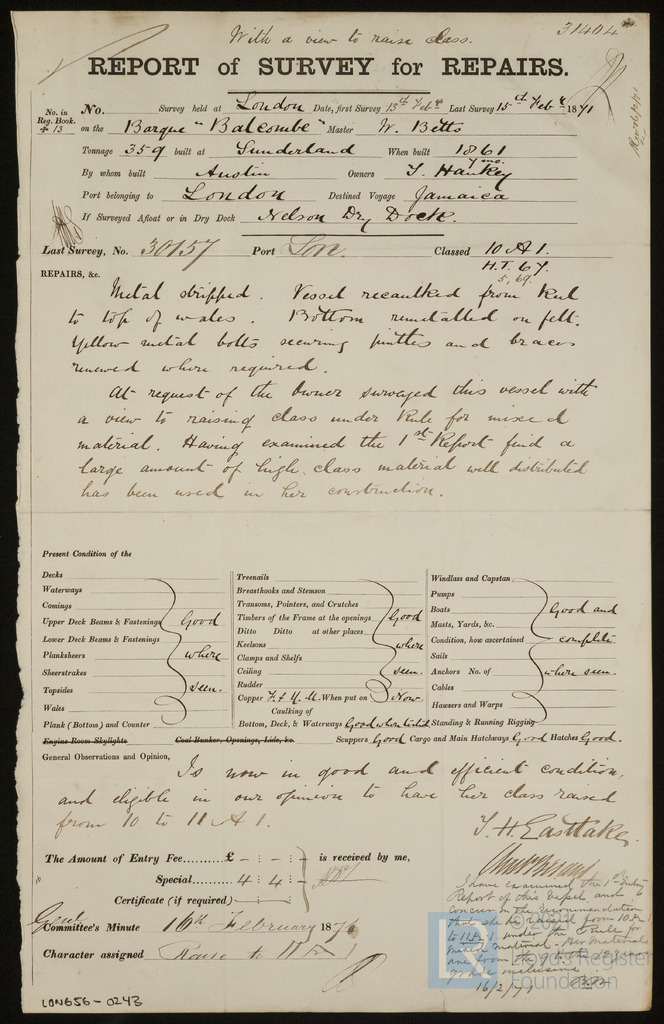 31404
With a view to raise class.
REPORT of SURVEY for REPAIRS.
No. in Reg. Book. 413 No. Survey held at London Date, first Survey 13th Feby Last Survey 15th Feby 1871
on the Barque "Balcombe" Master W. Betts
Tonnage 359 built at Sunderland When built 1861 7 mo.
By whom built Austin Owners T. Hankey
Port belonging to London Destined Voyage Jamaica
If Surveyed Afloat or in Dry Dock Nelson Dry Dock.
Last Survey, No. 30157 Port Lon. Classed 10 A 1.
H.T. 67
5, 69.
REPAIRS, &c.
Metal stripped. Vessel recaulked from Keel
to top of wales. Bottom remetalled on felt.
Yellow metal bolts securing pintles and braces
renewed where required.
At request of the Owner surveyed this vessel with
a view to raising class under Rule for mixed
material. Having examined the 1st Report find a
large amount of high class material well distributed
has been used in her construction.
Present Condition of the
Decks
Waterways
Comings
Upper Deck Beams & Fastenings
Lower Deck Beams & Fastenings
Planksheers
Sheerstrakes
Topsides
Wales
Plank (Bottoms) and Counter
Good where seen.
Engine Room Skylights
Treenails
Breasthooks and Stemson
Transoms, Pointers, and Crutches
Timbers of the Frame at the openings
Ditto Ditto at other places
Keelsons
Clamps and Shelfs
Ceiling
Rudder
Good where seen.
Copper F. & Y. M. When put on Now.
Caulking of
Bottom, Deck, & Waterways Good where tested
Coal Bunker, Openings, Lids, &c.
Windlass and Capstan
Pumps
Boats
Masts, Yards, &c.
Condition, how ascertained
Sails
Anchors No. of
Cables
Hawsers and Warps
Standing & Running Rigging
Good and complete where seen.
Scuppers Good Cargo and Main Hatchways Good Hatches Good.
General Observations and Opinion,
Is now in good and efficient condition,
and eligible in our opinion to have her class raised
from 10 to 11 A 1.
T. H. Eastlake
The Amount of Entry Fee £ - : - : - is received by me,
Special 4 : 4 : -
Certificate (if required) :
Committee's Minute 16th February 1871
Character assigned Raise to 11 A 1
I have examined the 1st Entry
Report of this Vessel and
concur in the recommendation
that she be raised from 10 A 1
to 11 A 1 under the Rule for
Mixed Material
16/2/71
LON656-0243
© 2021
LR
Lloyd's Register
Foundation